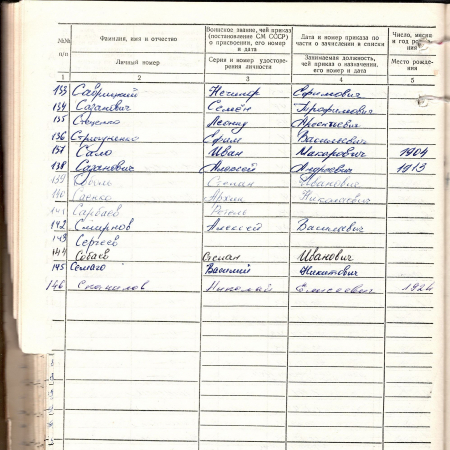 №№ п/п
Фамилия, имя и отчество
Личный номер
Воинское звание, чей приказ
(постановление СМ СССР)
о присвоении, его номер
и дата
Серия и номер удостове-
рения личности
Дата и номер приказа по
части о зачислении в списки
Занимаемая должность,
чей приказ о назначении,
его номер и дата
Число, месяц
и год
Место рожде-
ния
1 2 3 4 5
133 Савицкий Нечипор Ефимович
134 Сазанович Семён Трофимович
135 Леонид
136 Ефим Васильевич
137 Сало Иван Макарович 1904
138 Сазанович Алексей Андреевич 1913
139 Степан Иванович
140 Саенко Архип Николаевич
141 Сарбаев
142 Смирнов Алексей Васильевич
143 Сергеев
144 Собаев Степан Иванович
145 Семаго Василий Никитович
146 Николай Елисеевич 1924